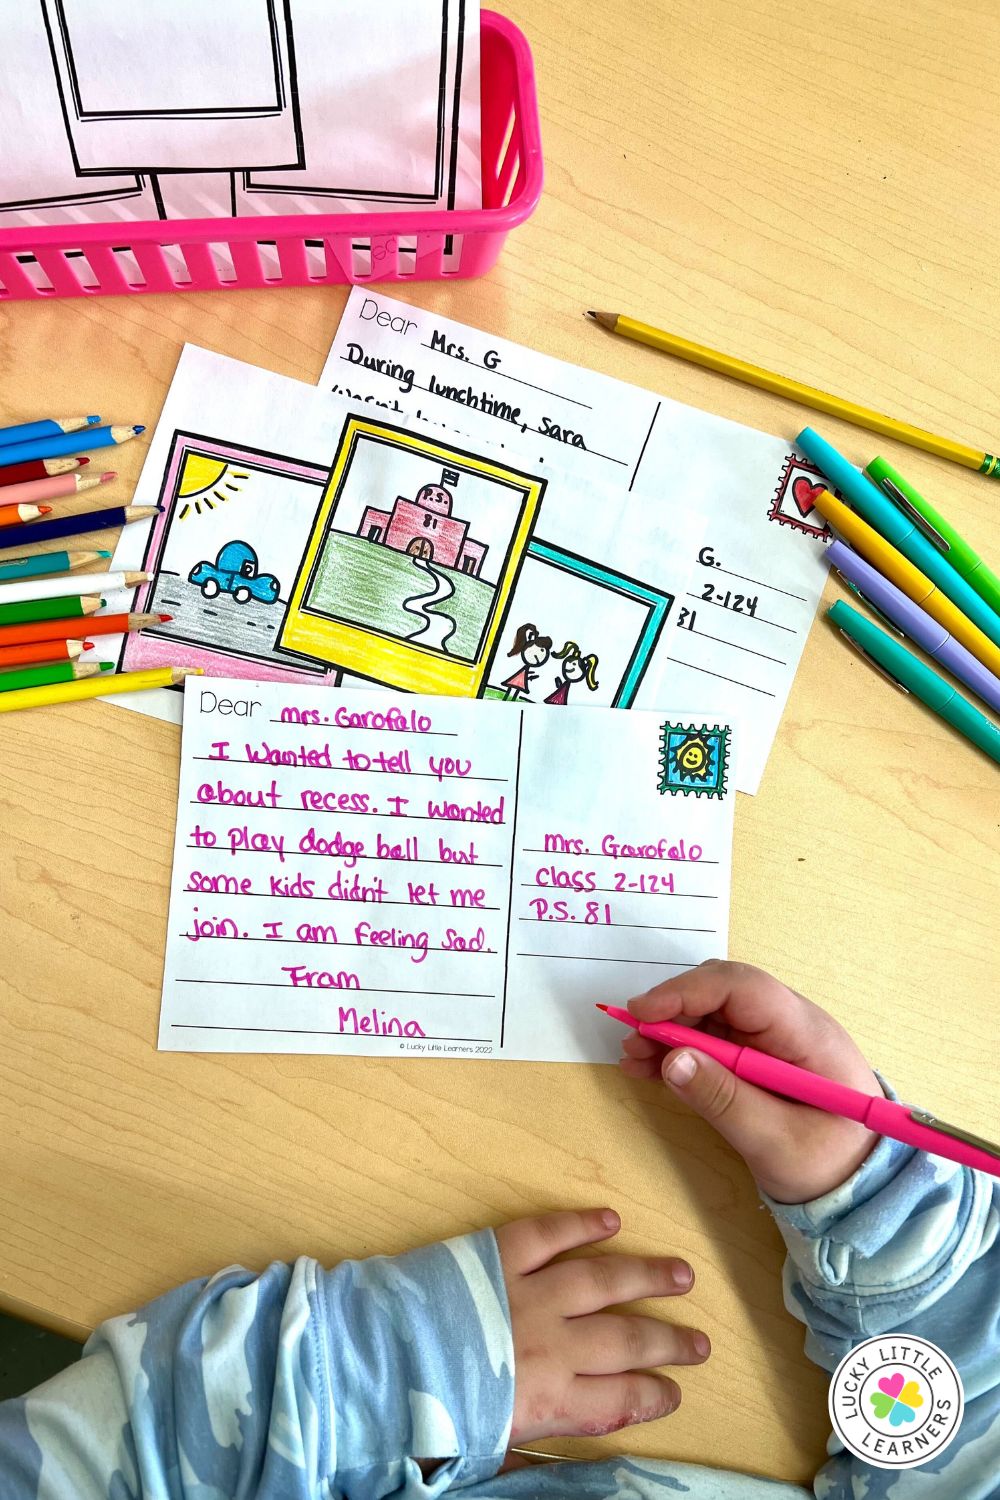 Dear Mrs. G
During lunchtime, Sara
wasn't
G.
2-124
81
P.S.
81
Dear mrs. Garofalo
I wanted to tell you
about recess. I wanted
to play dodge ball but
some kids didn't let me
join. I am feeling sad.
From
Melina
© Lucky Little Learners 2022
mrs. Garofalo
class 2-124
P.S. 81
LUCKY LITTLE
LEARNERS